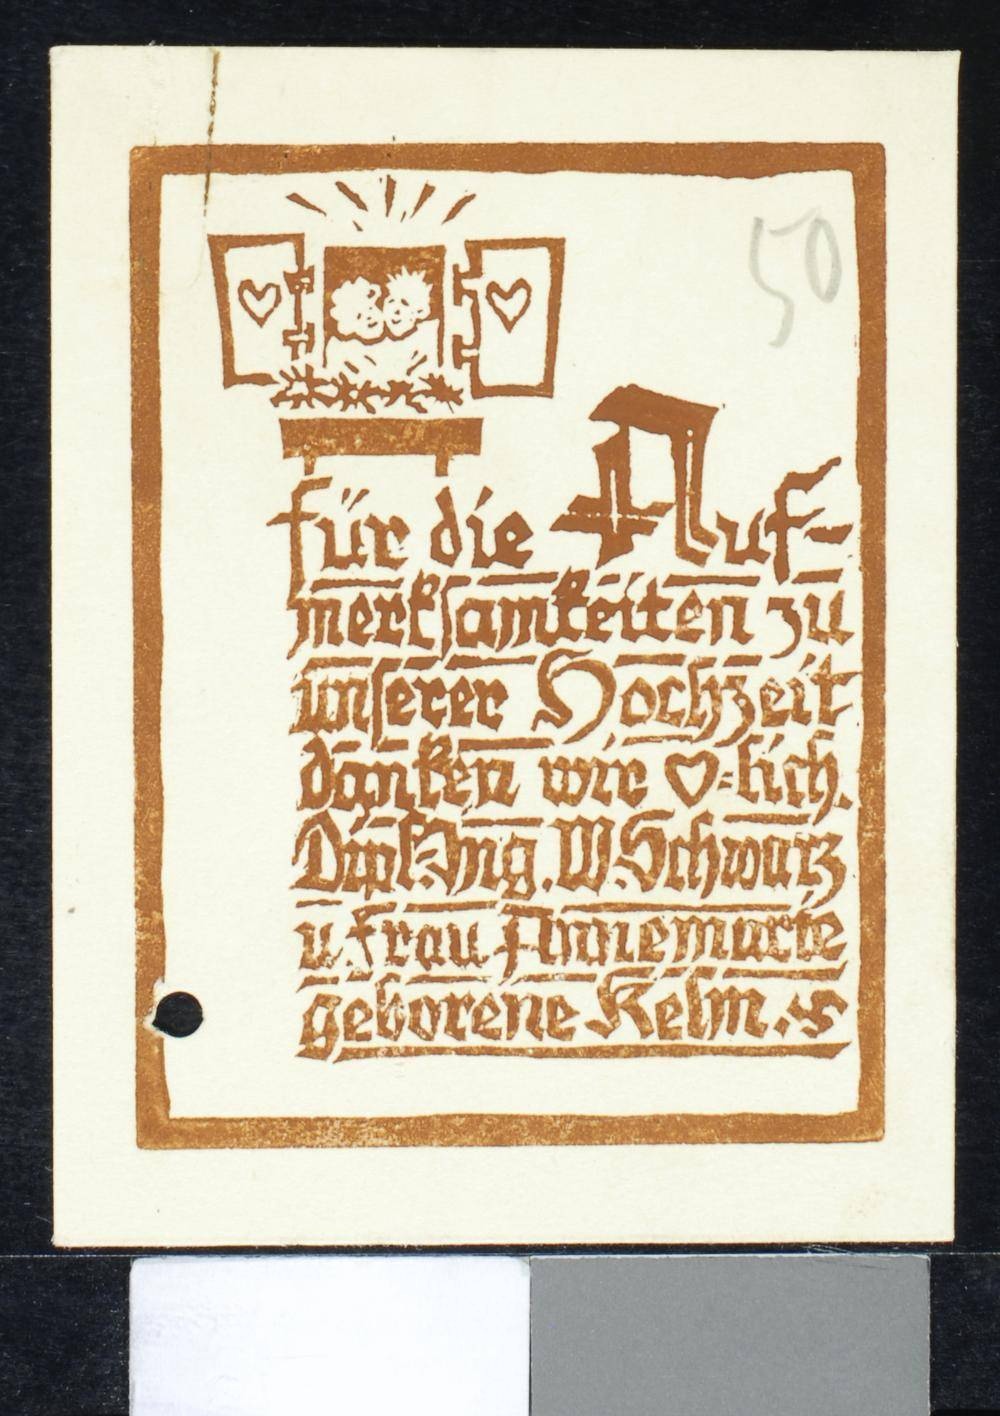 50
für die Auf-
merksamkeiten zu
unserer Hochzeit
danken wir ♡=lich.
Dipl.-Ing. W. Schwarz
u. Frau Annemarie
geborene Kelm.